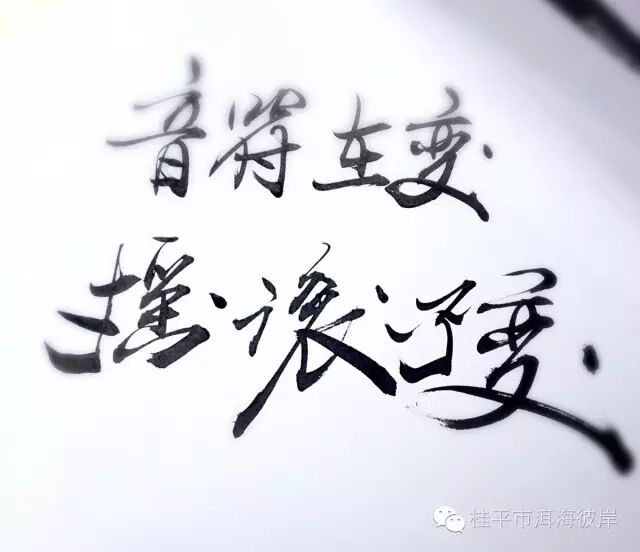 音符在变
摇滚不变
桂平市洱海彼岸